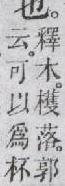 也。
釋木。檴落。郭
云。可以爲杯